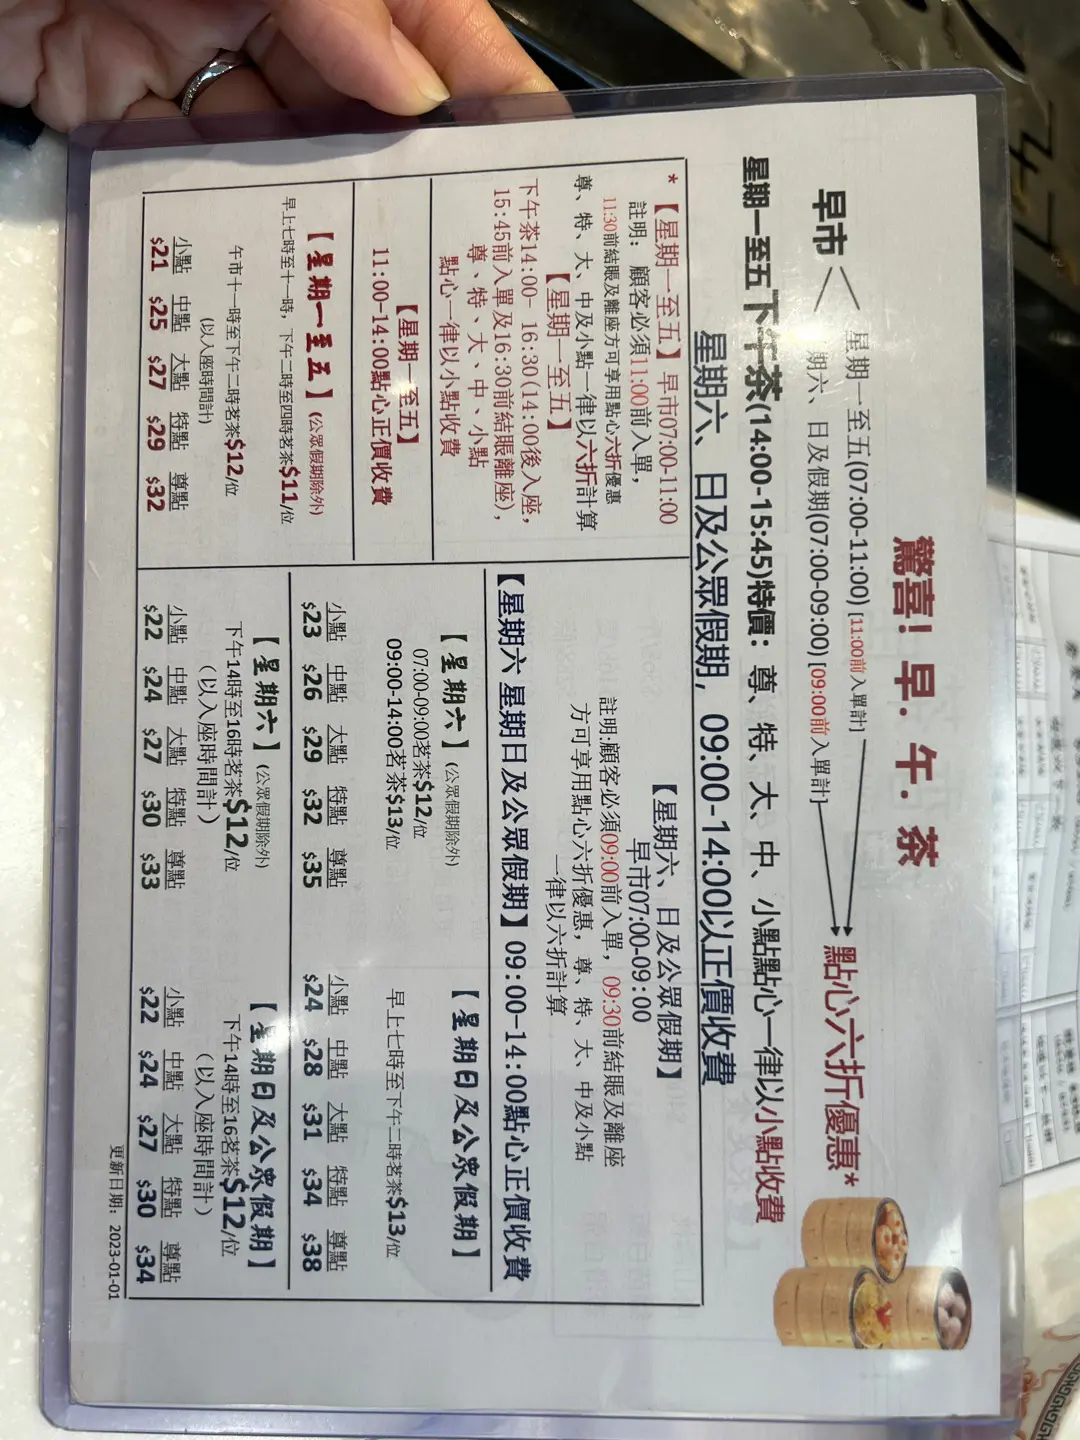 驚喜！早．午．茶
早市
星期一至五(07:00-11:00) [11:00前入單計]
期六、日及假期(07:00-09:00) [09:00前入單計]
點心六折優惠*
星期一至五下午茶(14:00-15:45)特價：尊、特、大、中、小點點心一律以小點收費
星期六、日及公眾假期，09:00-14:00以正價收費
*【星期一至五】早市07:00-11:00
註明：顧客必須11:00前入單，
11:30前結賬及離座方可享用點心六折優惠
尊、特、大、中及小點一律以六折計算
【星期一至五】
下午茶14:00- 16:30(14:00後入座，
15:45前入單及16:30前結賬離座)，
尊、特、大、中、小點
點心一律以小點收費
【星期一至五】
11:00-14:00點心正價收費
【星期一至五】(公眾假期除外)
早上七時至十一時，下午二時至四時茗茶$11/位
午市十一時至下午二時茗茶$12/位
(以入座時間計)
小點 中點 大點 特點 尊點
$21 $25 $27 $29 $32
【星期六、日及公眾假期】
早市07:00-09:00
註明:顧客必須09:00前入單，09:30前結賬及離座
方可享用點心六折優惠，尊、特、大、中及小點
一律以六折計算
【星期六 星期日及公眾假期】09:00-14:00點心正價收費
【星期六】(公眾假期除外)
07:00-09:00茗茶$12/位
09:00-14:00茗茶$13/位
小點 中點 大點 特點 尊點
$23 $26 $29 $32 $35
【星期日及公眾假期】
早上七時至下午二時茗茶$13/位
小點 中點 大點 特點 尊點
$24 $28 $31 $34 $38
【星期六】(公眾假期除外)
下午14時至16時茗茶$12/位
（以入座時間計）
小點 中點 大點 特點 尊點
$22 $24 $27 $30 $33
【星期日及公眾假期】
下午14時至16茗茶$12/位
（以入座時間計）
小點 中點 大點 特點 尊點
$22 $24 $27 $30 $34
更新日期：2023-01-01